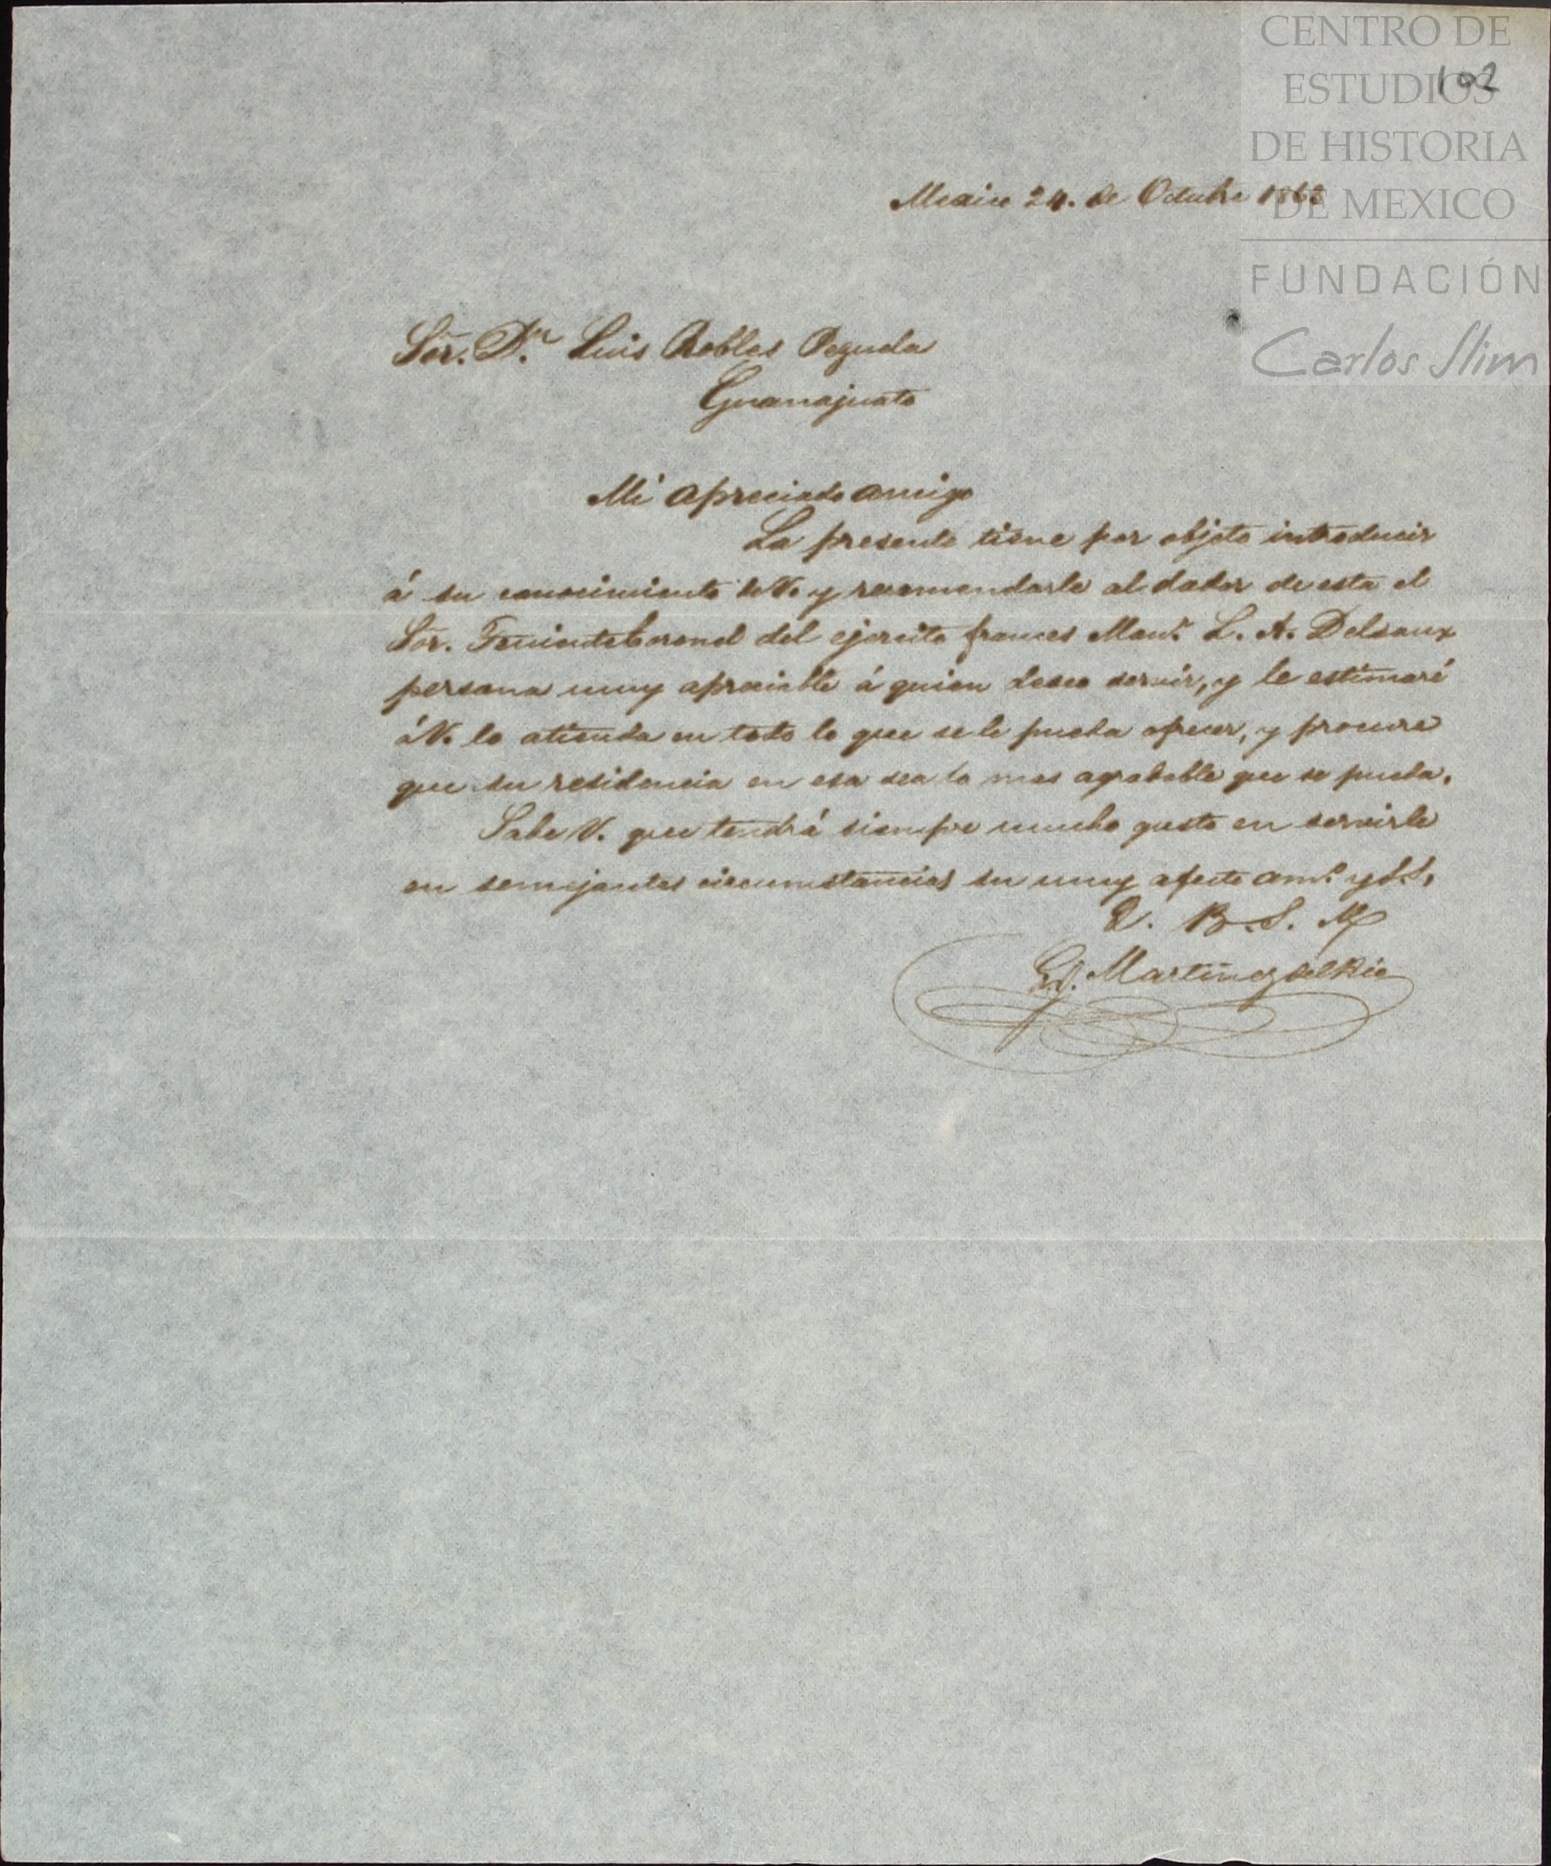 CENTRO DE
ESTUDIOS
DE HISTORIA
DE MEXICO
FUNDACIÓN
Carlos Slim
102
Mexico 24. de Octubre 186
Sõr. D.n Luis Robles Pezuela
Guanajuato
Mi apreciado amigo
La presente tiene por objeto introducir
á su conocimiento de V. y recomendarle al dador de esta el
Sõr. Teniente Coronel del ejercito frances Mon.r L. A. Delsaux
persona muy apreciable á quien deseo servir, y le estimaré
á V. lo atienda en todo lo que se le pueda ofrecer, y procure
que su residencia en esa sea lo mas agradable que se pueda.
Sabe V. que tendrá siempre mucho gusto en servirle
en semejantes circumstancias su muy afecto am.o y S.S.
Q. B. S. M
Martinez del Rio